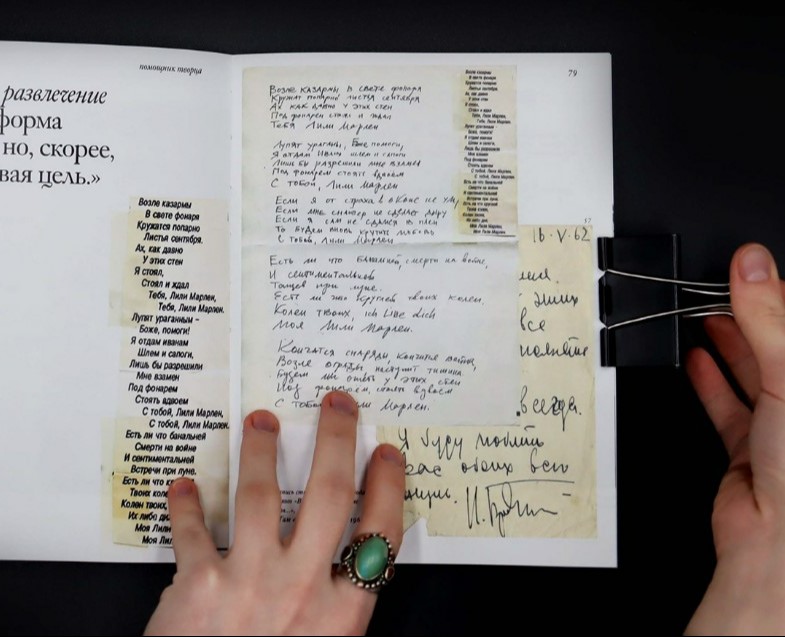 помощник творца
79
развлечение
форма
но, скорее,
вая цель.»
Возле казармы
В свете фонаря
Кружатся попарно
Листья сентября.
Ах, как давно
У этих стен
Я стоял,
Стоял и ждал
Тебя, Лили Марлен,
Тебя, Лили Марлен.
Лупят ураганным –
Боже, помоги!
Я отдам иванам
Шлем и сапоги,
Лишь бы разрешили
Мне взамен
Под фонарем
Стоять вдвоем
С тобой, Лили Марлен,
С тобой, Лили Марлен.
Есть ли что банальней
Смерти на войне
И сентиментальней
Встречи при луне.
Есть ли что к
Твоих коле
Колен твоих,
Их либо ди
Моя Лили
Моя Лил
Возле казармы в свете фонаря
Кружат попарно листья сентября
Ах как давно у этих стен
Под фонарем стоял и ждал
Тебя Лили Марлен
Лупят ураганы, Боже помоги,
Я отдам Иванам шлем и сапоги
Лишь бы разрешили мне взамен
Под фонарем стоять вдвоем
С тобой, Лили Марлен
Если я от страха в окопе не ум
Если мне снайпер не сделает дыру
Если я сам не сдамся в плен
То будем вновь крутить любовь
С тобой, Лили Марлен
Есть ли что банальней, смерти на войне,
И сентиментальней
при луне.
Есть ли что круглей твоих колен,
Колен твоих, ich liebe dich
Моя Лили Марлен.
Кончатся снаряды, кончится война,
Возле ограды, тишина
Будем мы опять у этих стен
Под фонарем, стоять вдвоем
С тобой Лили Марлен.
Возле казармы
В свете фонаря
Кружатся попарно
Листья сентября.
Ах, как давно
У этих стен
Я стоял,
Стоял и ждал
Тебя, Лили Марлен,
Тебя, Лили Марлен.
Лупят ураганным –
Боже, помоги!
Я отдам иванам
Шлем и сапоги,
Лишь бы разрешили
Мне взамен
Под фонарем
Стоять вдвоем
С тобой, Лили Марлен,
С тобой, Лили Марлен.
Есть ли что банальней
Смерти на войне
И сентиментальней
Встречи при луне.
Есть ли что круглей
Твоих колен,
Колен твоих,
Моя Лили Марлен,
Моя Лили Марлен.
16-V-62
все
всегда.
Я буду любить
вас обоих всю